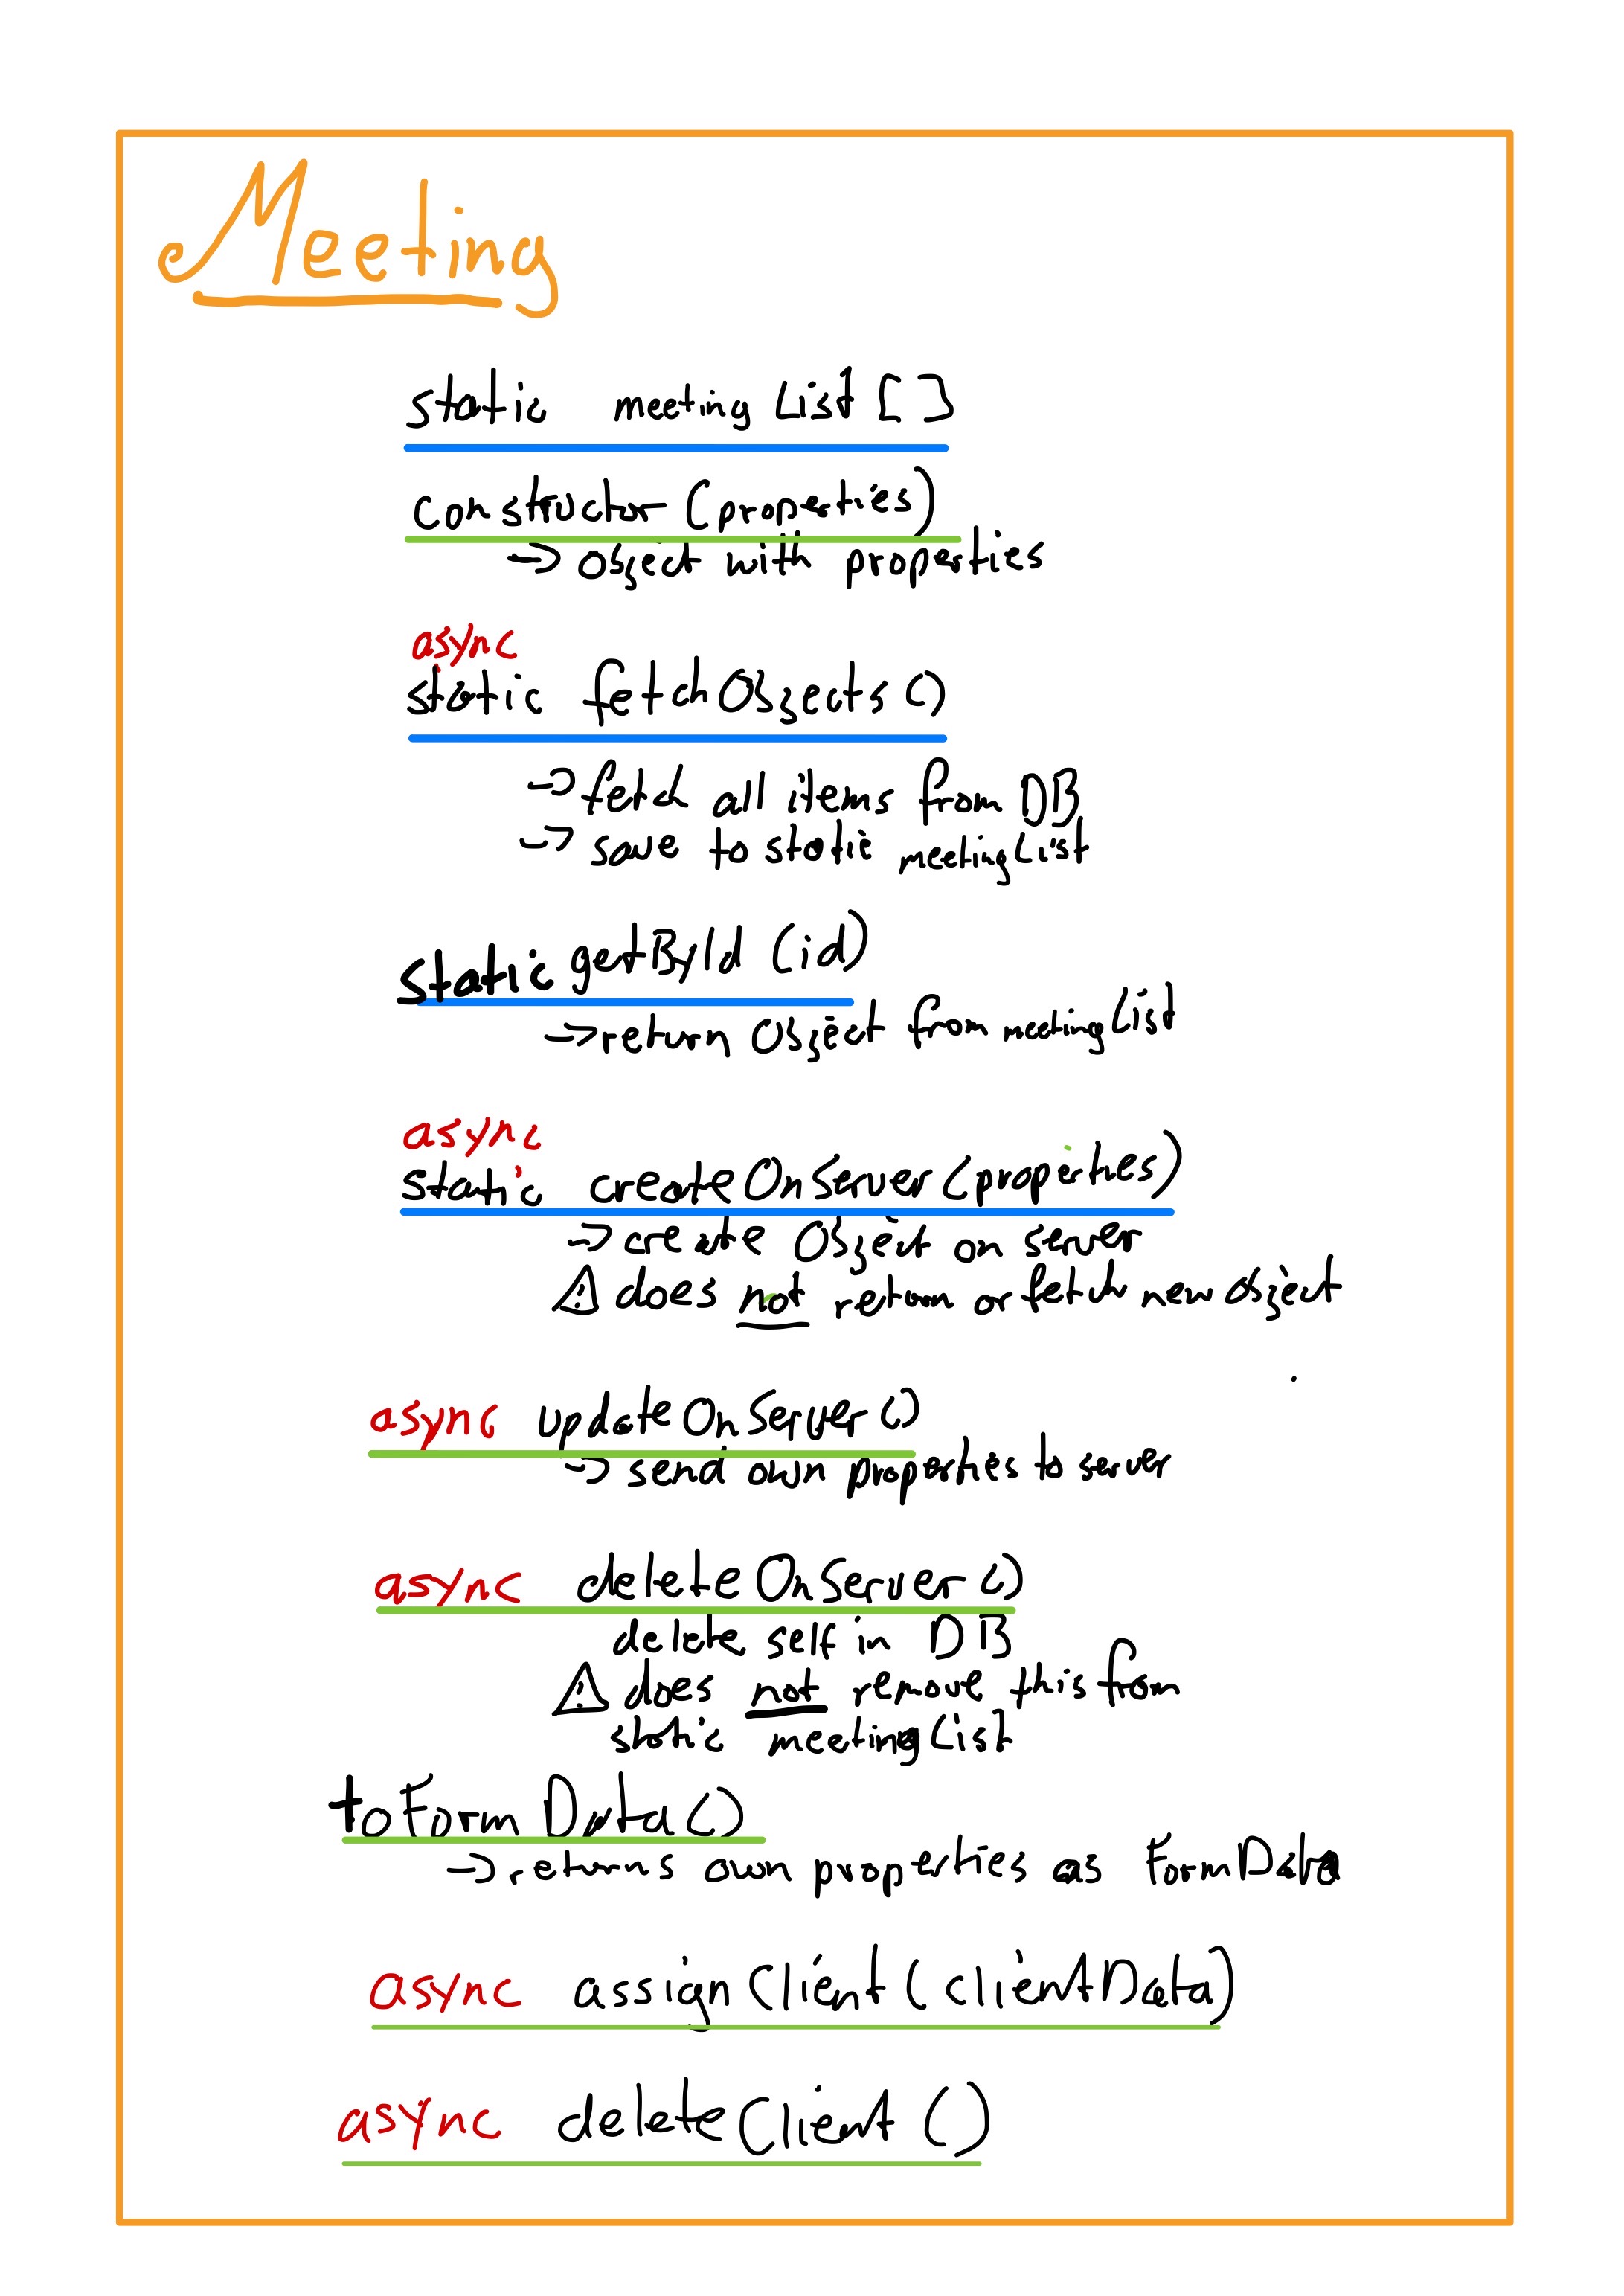 Meeting
static meetingList []
constructor (properties)
→ Object with properties
async
static fetchObjects ()
→ fetch all items from DB
→ save to static meetingList
static getById (id)
→ return Object from meetingList
async
static createOnServer (properties)
→ create Object on server
⚠ does not return or fetch new object
async updateOnServer ()
→ send own properties to server
async deleteOnServer ()
delete self in DB
⚠ does not remove this from
static meetingList
toFormData ()
→ returns own properties as FormData
async assignClient (clientData)
async deleteClient ()